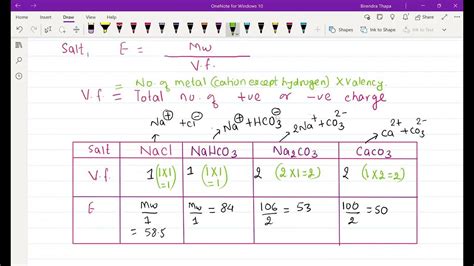 OneNote for Windows 10
Birendra Thapa
Salt, E = Mw / V.f.
= No. of metal (cation except hydrogen) X valency.
V.f = Total no. of +ve or -ve charge
Na⊕ + Cl⊖ Na⊕ + HCO3⊖ 2Na⁺ + CO3²⁻ Ca²⁺ + CO3²⁻
Salt NaCl NaHCO3 Na2CO3 CaCO3
V.f 1 (1X1 =1) 1 (1X1 =1) 2 (2X1=2) 2 (1X2=2)
E Mw/1 = 58.5 Mw/1 = 84 106/2 = 53 100/2 = 50